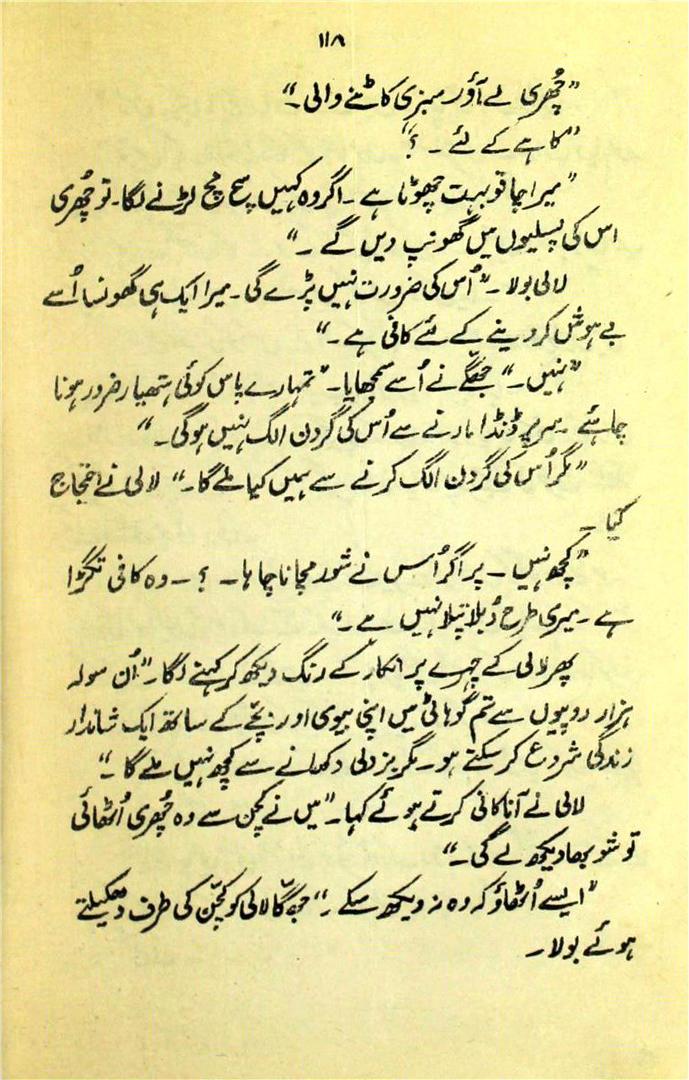 ۱۱۸
”چُھری لے آؤ۔ سبزی کاٹنے والی۔“
”کاہے کے لئے ۔ ؟“
”میرا چاقو بہت چھوٹا ہے ۔ اگر وہ کہیں سچ مچ لڑنے لگا۔ تو چُھری
اس کی پسلیوں میں گھونپ دیں گے ۔“
لالی بولا ۔ ”اُس کی ضرورت نہیں پڑے گی ۔ میرا ایک ہی گھونسا اُسے
بے ہوش کر دینے کے لئے کافی ہے ۔“
”نہیں ۔“ جگّے نے اُسے سمجھایا۔ ”تمہارے پاس کوئی ہتھیار ضرور ہونا
چاہئے ۔ سر پر ڈنڈا مارنے سے اُس کی گردن الگ نہیں ہوگی۔“
”مگر اُس کی گردن الگ کرنے سے ہمیں کیا ملے گا۔“ لالی نے احتجاج
کیا ۔
”کچھ نہیں ۔ پر اگر اُس نے شور مچانا چاہا۔ ؟ ۔ وہ کافی تگڑا
ہے ۔ میری طرح دُبلا پتلا نہیں ہے ۔“
پھر لالی کے چہرے پر انکار کے رنگ دیکھ کر کہنے لگا۔ ”اُن سولہ
ہزار روپیوں سے تم گوہاٹی میں اپنی بیوی اور بچّے کے ساتھ ایک شاندار
زندگی شروع کر سکتے ہو۔ مگر بزدلی دکھانے سے کچھ نہیں ملے گا ۔“
لالی نے آناکانی کرتے ہوئے کہا۔ ”میں نے کچن سے وہ چُھری اُٹھائی
تو شوبھا دیکھ لے گی۔“
”ایسے اُٹھاؤ کہ وہ نہ دیکھ سکے ۔“ جگّا لالی کو کچّن کی طرف دھکیلتے
ہوئے بولا ۔